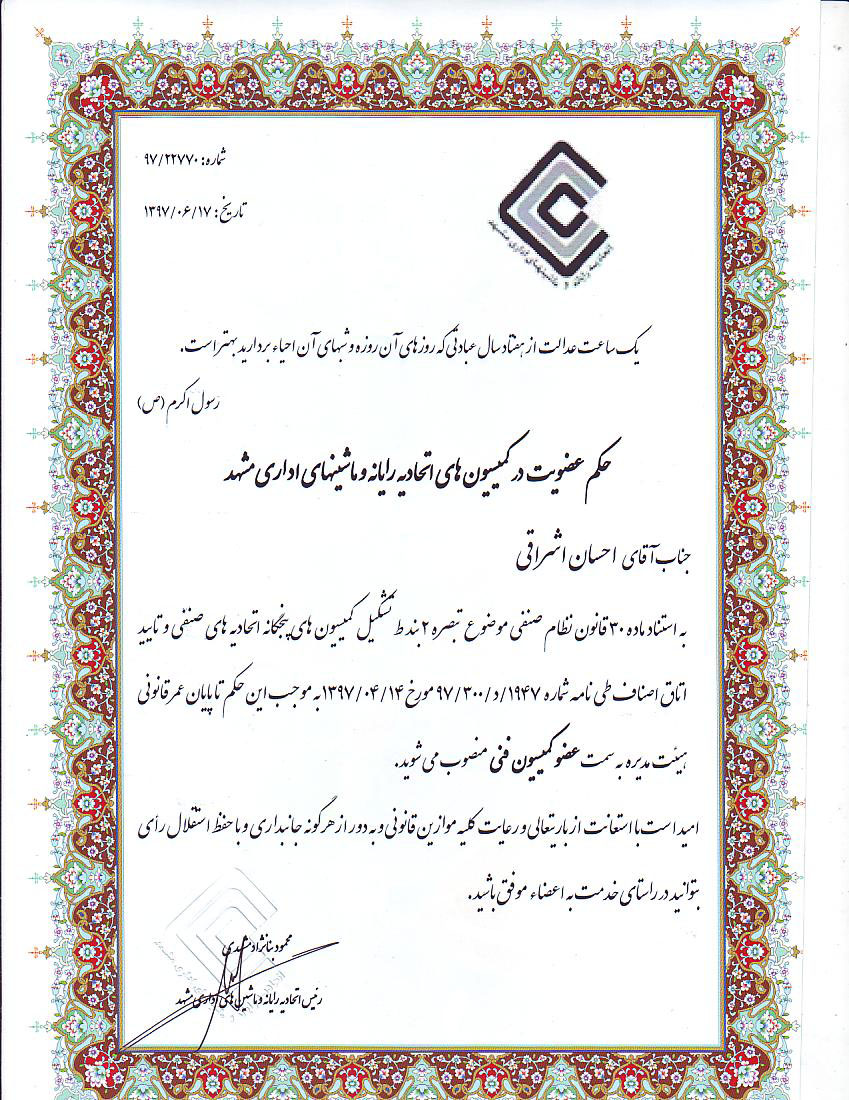 شماره: ۹۷/۲۲۷۷۰
تاریخ: ۱۳۹۷/۰۶/۱۷
اتحادیه رایانه و ماشینهای اداری مشهد
یک ساعت عدالت از هفتاد سال عبادتی که روزهای آن روزه و شبهای آن احیاء بردارید بهتر است.
رسول اکرم (ص)
حکم عضویت در کمیسیون های اتحادیه رایانه و ماشینهای اداری مشهد
جناب آقای احسان اشراقی
به استناد ماده ۳۰ قانون نظام صنفی موضوع تبصره ۲ بند ط تشکیل کمیسیون های پنجگانه اتحادیه های صنفی و تایید
اتاق اصناف طی نامه شماره ۱۹۴۷/د/۹۷/۳۰۰ مورخ ۱۳۹۷/۰۴/۱۴ به موجب این حکم تا پایان عمر قانونی
هیئت مدیره به سمت عضو کمیسیون فنی منصوب می شوید.
امید است با استعانت از باریتعالی و رعایت کلیه موازین قانونی و به دور از هرگونه جانبداری و با حفظ استقلال رأی
بتوانید در راستای خدمت به اعضاء موفق باشید.
محمود بنانژاد مشهدی
رئیس اتحادیه رایانه و ماشین های اداری مشهد